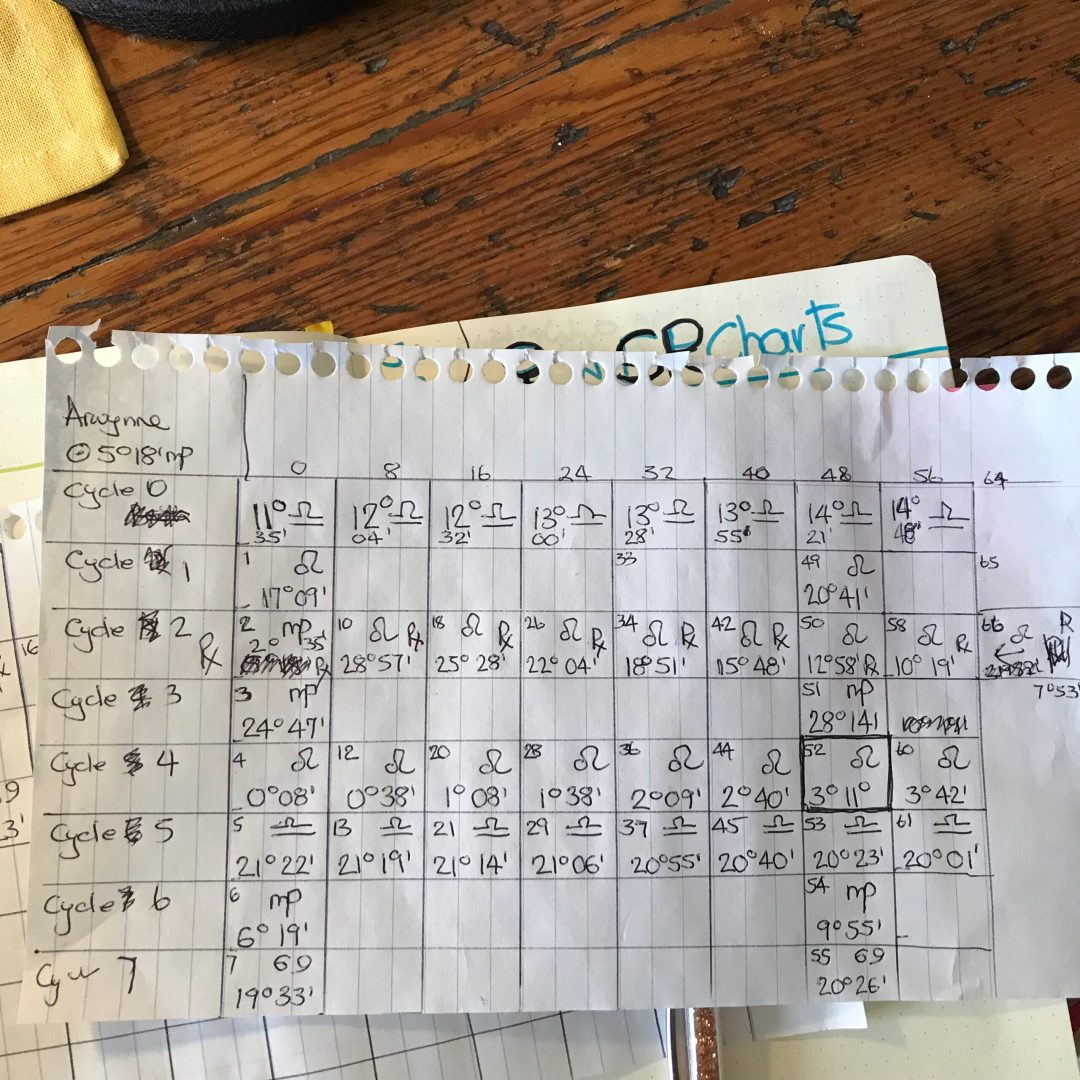 SR Charts
Arwynne
☉ 5°18' ♍
0 8 16 24 32 40 48 56 64
Cycle 0
11° ♎ 12° ♎ 12° ♎ 13° ♎ 13° ♎ 13° ♎ 14° ♎ 14° ♎
35' 04' 32' 00' 28' 55' 21' 48'
Cycle 1
1 ♌ 33 49 ♌ 65
17°09' 20°41'
Cycle 2
2 ♍ 10 ♌ ℞ 18 ♌ ℞ 26 ♌ ℞ 34 ♌ ℞ 42 ♌ ℞ 50 ♌ 58 ♌ ℞ 66 ♌ R
℞ 2° 35' ℞ 28°57' 25°28' 22°04' 18°51' 15°48' 12°58' ℞ 10°19'
7°53'
Cycle 3
3 ♍ 51 ♍
24°47' 28°14'
Cycle 4
4 ♌ 12 ♌ 20 ♌ 28 ♌ 36 ♌ 44 ♌ 52 ♌ 60 ♌
0°08' 0°38' 1°08' 1°38' 2°09' 2°40' 3°11° 3°42'
Cycle 5
5 ♎ 13 ♎ 21 ♎ 29 ♎ 37 ♎ 45 ♎ 53 ♎ 61 ♎
21°22' 21°19' 21°14' 21°06' 20°55' 20°40' 20°23' 20°01'
Cycle 6
6 ♍ 54 ♍
6°19' 9°55'
7
7 ♋ 55 ♋
19°33' 20°26'
16
9
3'